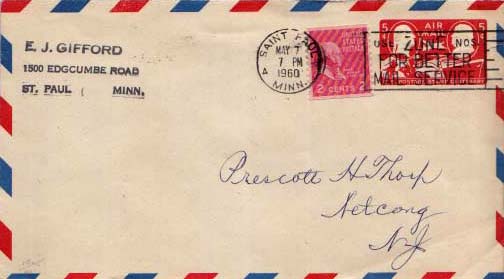 E. J. GIFFORD
1500 EDGCUMBE ROAD
ST. PAUL ( MINN.
SAINT PAUL
MAY 7
7 PM
1960
MINN.
UNITED STATES POSTAGE
2 CENTS 2
5 AIR 5
USE ZONE NOS.
FOR BETTER
MAIL SERVICE
Prescott H Thorp
Netcong
NJ